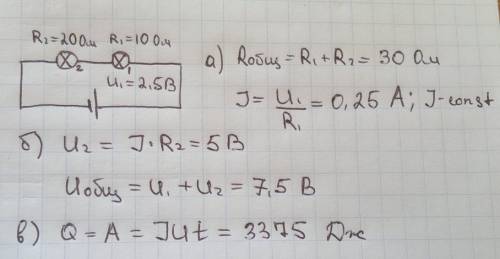 R₂=20Ом R₁=10Ом
2 1
U₁=2,5В
а) Rобщ=R₁+R₂= 30 Ом
J= U₁/R₁ = 0,25 А; J-const
б) U₂ = J·R₂=5В
Uобщ=U₁+U₂=7,5 В
в) Q=A=JUt=3375 Дж